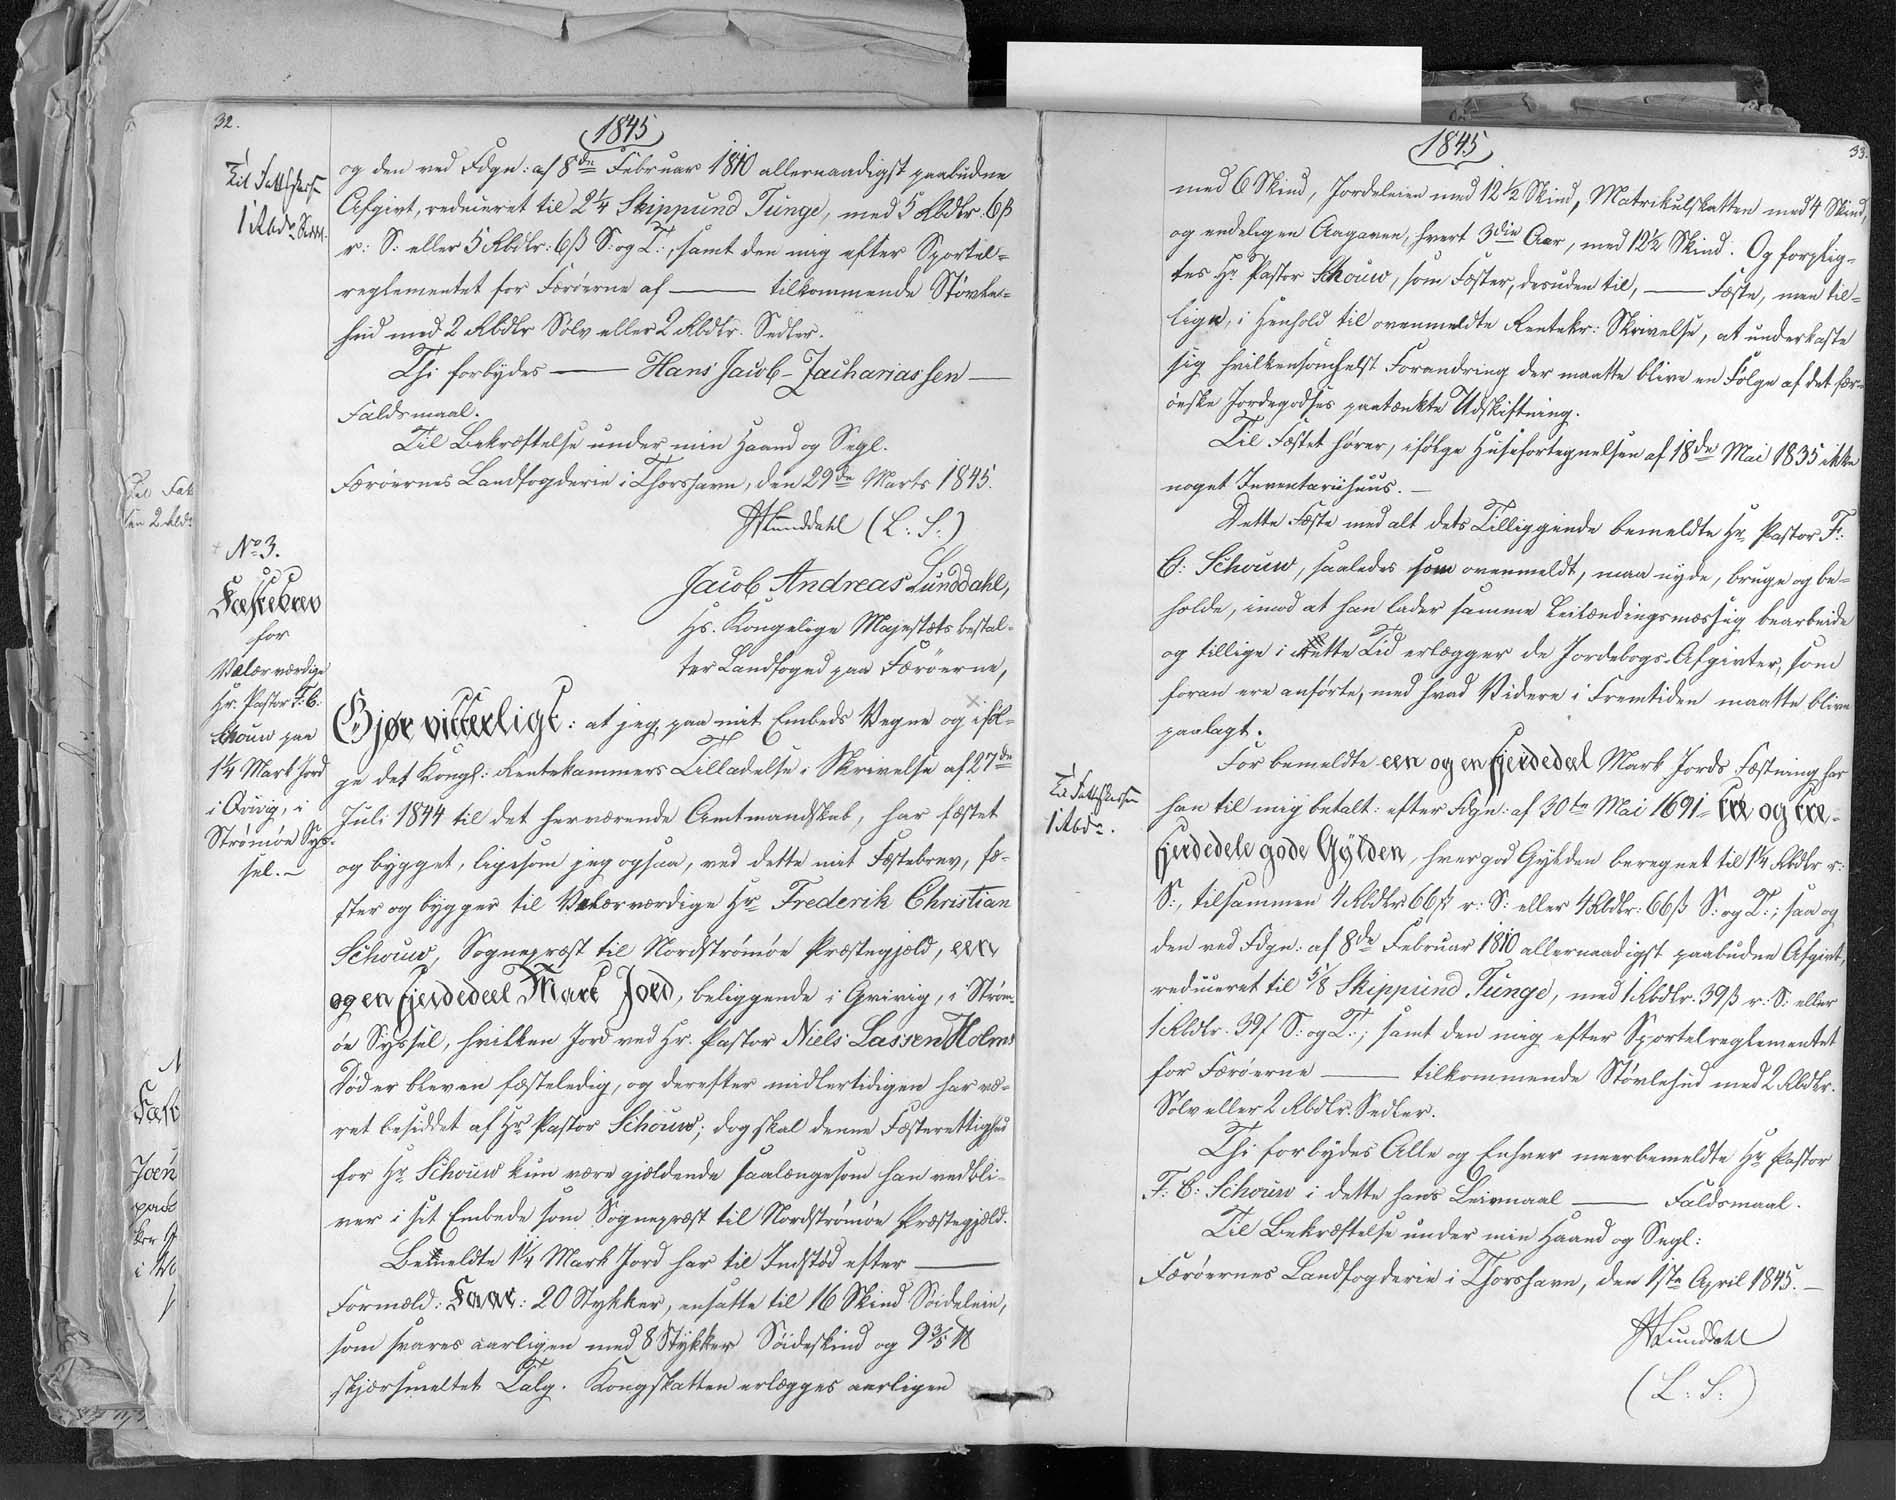 32.
1845
og den ved Fdgn: af 8de Februar 1810 allernaadigst paabudne
Afgivt, reduceret til 2 1/4 Skippund Tunge, med 5 Rbdlr: 6ß
r: S: eller 5 Rbdlr: 6ß S: og T:, samt den mig efter Sportel-
reglementet for Færöerne af —— tilkommende Stövle-
hud med 2 Rbdlr Sölv eller 2 Rbdlr. Sedler.
Thi forbydes —— Hans Jacob Zachariassen —
Faldsmaal.
Til Bekræftelse under min Haand og Segl.
Færöernes Landfogderie i Thorshavn, den 29de Marts 1845.
HLunddahl (L: S:)
No 3.
Fæstebrev
for
Velærværdige
Hr. Pastor F: C:
Schouw paa
1 1/4 Mark Jord
i Qvivig, i
Strömöe Sys-
sel. –
Jacob Andreas Lunddahl,
Hs. Kongelige Majestæts bestal-
ter Landfoged paa Færöerne,
Gjør vitterligt: at jeg, paa mit Embeds Vegne og iföl-
ge det Kongl: Rentekammers Tilladelse i Skrivelse af 27de
Juli 1844 til det herværende Amtmandskab, har fæstet
og bygget, ligesom jeg ogsaa, ved dette mit Fæstebrev, fæ-
ster og bygger til Velærværdige Hr Frederik Christian
Schouw, Sognepræst til Nordströmöe Præstegjæld, een
og en fjerdedeel Mark Jord, beliggende i Qvivig, i Ström-
öe Syssel, hvilken Jord ved Hr. Pastor Niels Lassen Holms
Död er bleven fæsteledig, og derefter midlertidigen har væ-
ret besiddet af Hr Pastor Schouw; dog skal denne Fæsterettighed
for Hr Schouw kun være gjældende saalænge som han vedbli-
ver i sit Embede som Sognepræst til Nordströmöe Præstegjæld.
Bemeldte 1 1/4 Mark Jord har til Indstöd efter ——
Formæld: Faar: 20 Stykker, ansatte til 16 Skind Söideleie,
som svares aarligen med 8 Stykker Söideskind og 9 3/5 ℔
skjærsmeltet Talg. Kongskatten erlægges aarligen
1845
33.
med 6 Skind, Jordeleien med 12 1/2 Skind, Matrikulskatten med 4 Skind,
og endeligen Aagaven, hvert 3die Aar, med 12 1/2 Skind. Og forplig-
tes Hr Pastor Schouw, som Fæster, desuden til, —— Fæste, men til-
lige, i Henhold til ovenmeldte Rentekr: Skrivelse, at underkaste
sig hvilkensomhelst Forandring der maatte blive en Fölge af det fær-
öeske Jordegodses paatænkte Udskiftning.
Til Fæstet hörer, ifölge Husefortegnelsen af 18de Mai 1835 ikke
noget Inventariihuus. –
Dette Fæste med alt dets Tilliggende bemeldte Hr Pastor F:
C: Schouw, saaledes som ovenmeldt, maa nyde, bruge og be-
holde, imod at han lader samme Leilændingsmæssig bearbeide
og tillige i rette Tid erlægger de Jordebogs-Afgivter, som
foran ere anförte, med hvad Videre i Fremtiden maatte blive
paalagt.
For bemeldte een og en fjerdedeel Mark Jords Fæstning har
han til mig betalt: efter Fdgn: af 30te Mai 1691 – tre og tre-
fjerdedele gode Gylden, hver god Gylden beregnet til 1 1/4 Rbdlr r:
S:, tilsammen 4 Rbdlr 66ß r: S: eller 4 Rbdlr: 66ß S: og T:; saa og
den ved Fdgn: af 8de Februar 1810 allernaadigst paabudne Afgivt,
reduceret til 5/8 Skippund Tunge, med 1 Rbdlr. 39ß r: S: eller
1 Rbdlr. 39ß S: og T:; samt den mig efter Sportelreglementet
for Færöerne —— tilkommende Stövlehud med 2 Rbdlr.
Sölv eller 2 Rbdlr. Sedler.
Thi forbydes Alle og Enhver meerbemeldte Hr Pastor
F: C: Schouw i dette hans Leiemaal —— Faldsmaal.
Til Bekræftelse under min Haand og Segl:
Færöernes Landfogderie i Thorshavn, den 1ste April 1845. –
HLunddahl
(L: S:)